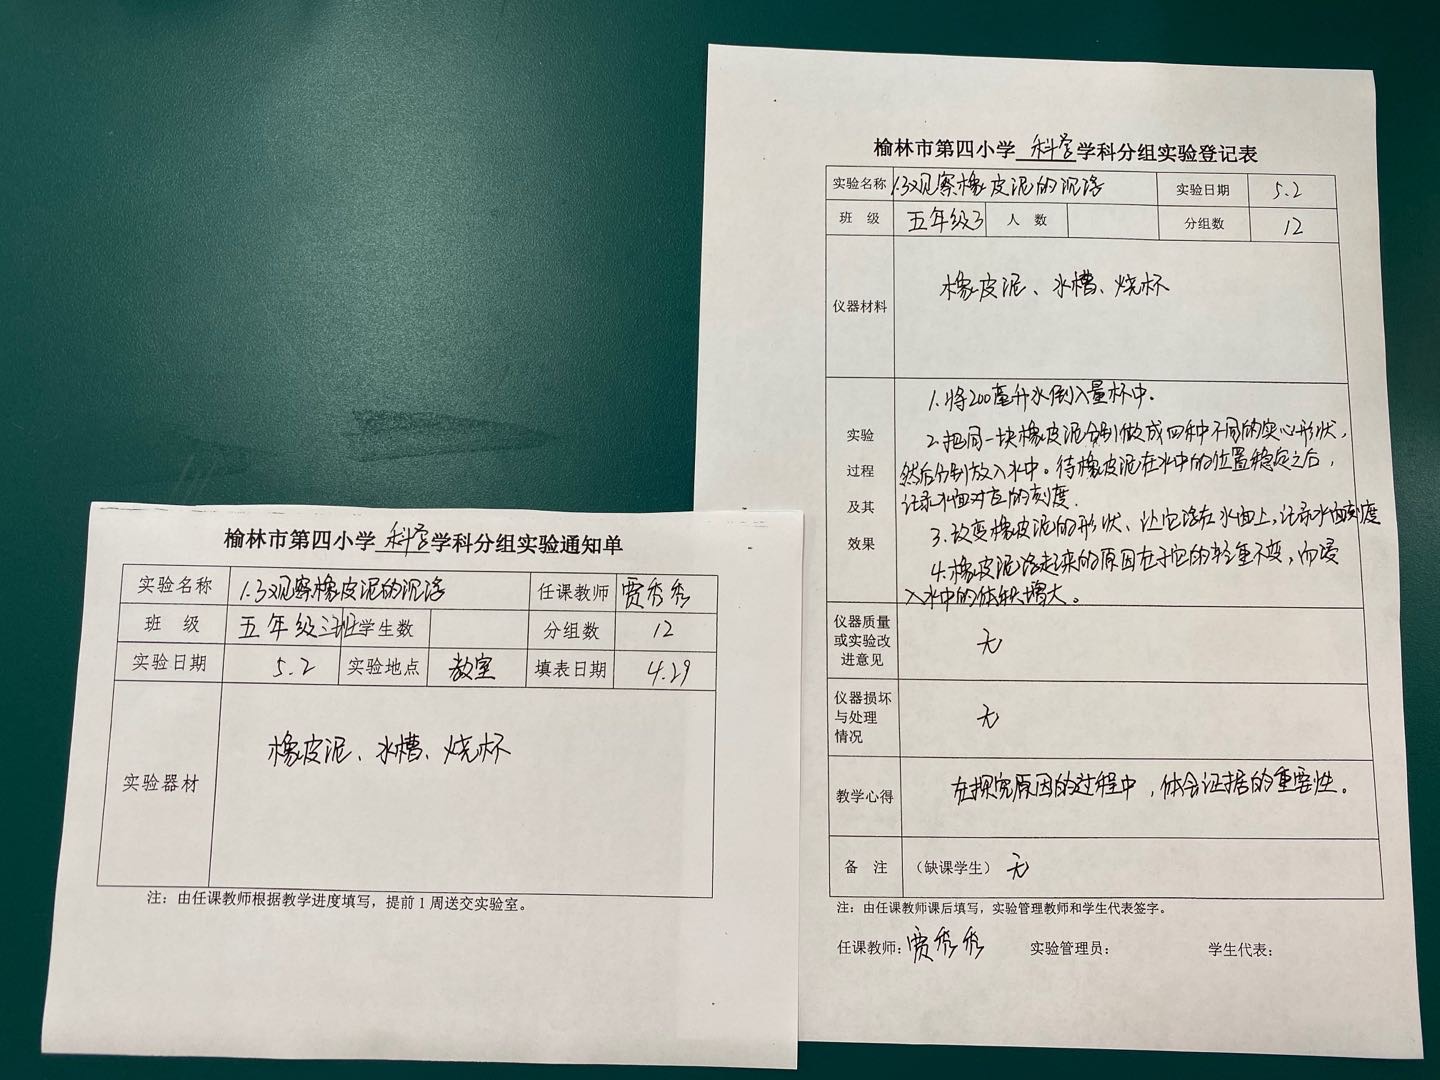 榆林市第四小学 科学 学科分组实验通知单
实验名称 1.3观察橡皮泥的沉浮 任课教师 贾秀秀
班 级 五年级三班 学生数 分组数 12
实验日期 5.2 实验地点 教室 填表日期 4.29
实验器材 橡皮泥、水槽、烧杯
注：由任课教师根据教学进度填写，提前1周送交实验室。
榆林市第四小学 科学 学科分组实验登记表
实验名称 1.3观察橡皮泥的沉浮 实验日期 5.2
班 级 五年级3 人 数 分组数 12
仪器材料 橡皮泥、水槽、烧杯
实验
过程
及其
效果
1.将200毫升水倒入量杯中.
2.把同一块橡皮泥分别做成四种不同的实心形状，
然后分别放入水中。待橡皮泥在水中的位置稳定之后，
记录水面对应的刻度.
3.改变橡皮泥的形状、让它浮在水面上,记录水面刻度
4.橡皮泥浮起来的原因在于它的轻重不变，而浸
入水中的体积增大。
仪器质量
或实验改
进意见
无
仪器损坏
与处理
情况
无
教学心得 在探究原因的过程中，体会证据的重要性。
备 注 （缺课学生） 无
注：由任课教师课后填写，实验管理教师和学生代表签字。
任课教师：贾秀秀 实验管理员： 学生代表：